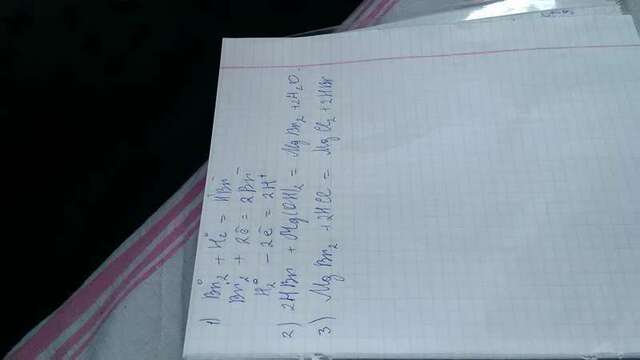 1) Br₂⁰ + H₂⁰ = HBr
Br₂⁰ + 2ē = 2Br⁻
H₂⁰ - 2ē = 2H⁺
2) 2HBr + Mg(OH)₂ = MgBr₂ + 2H₂O.
3) MgBr₂ + 2HCl = MgCl₂ + 2HBr